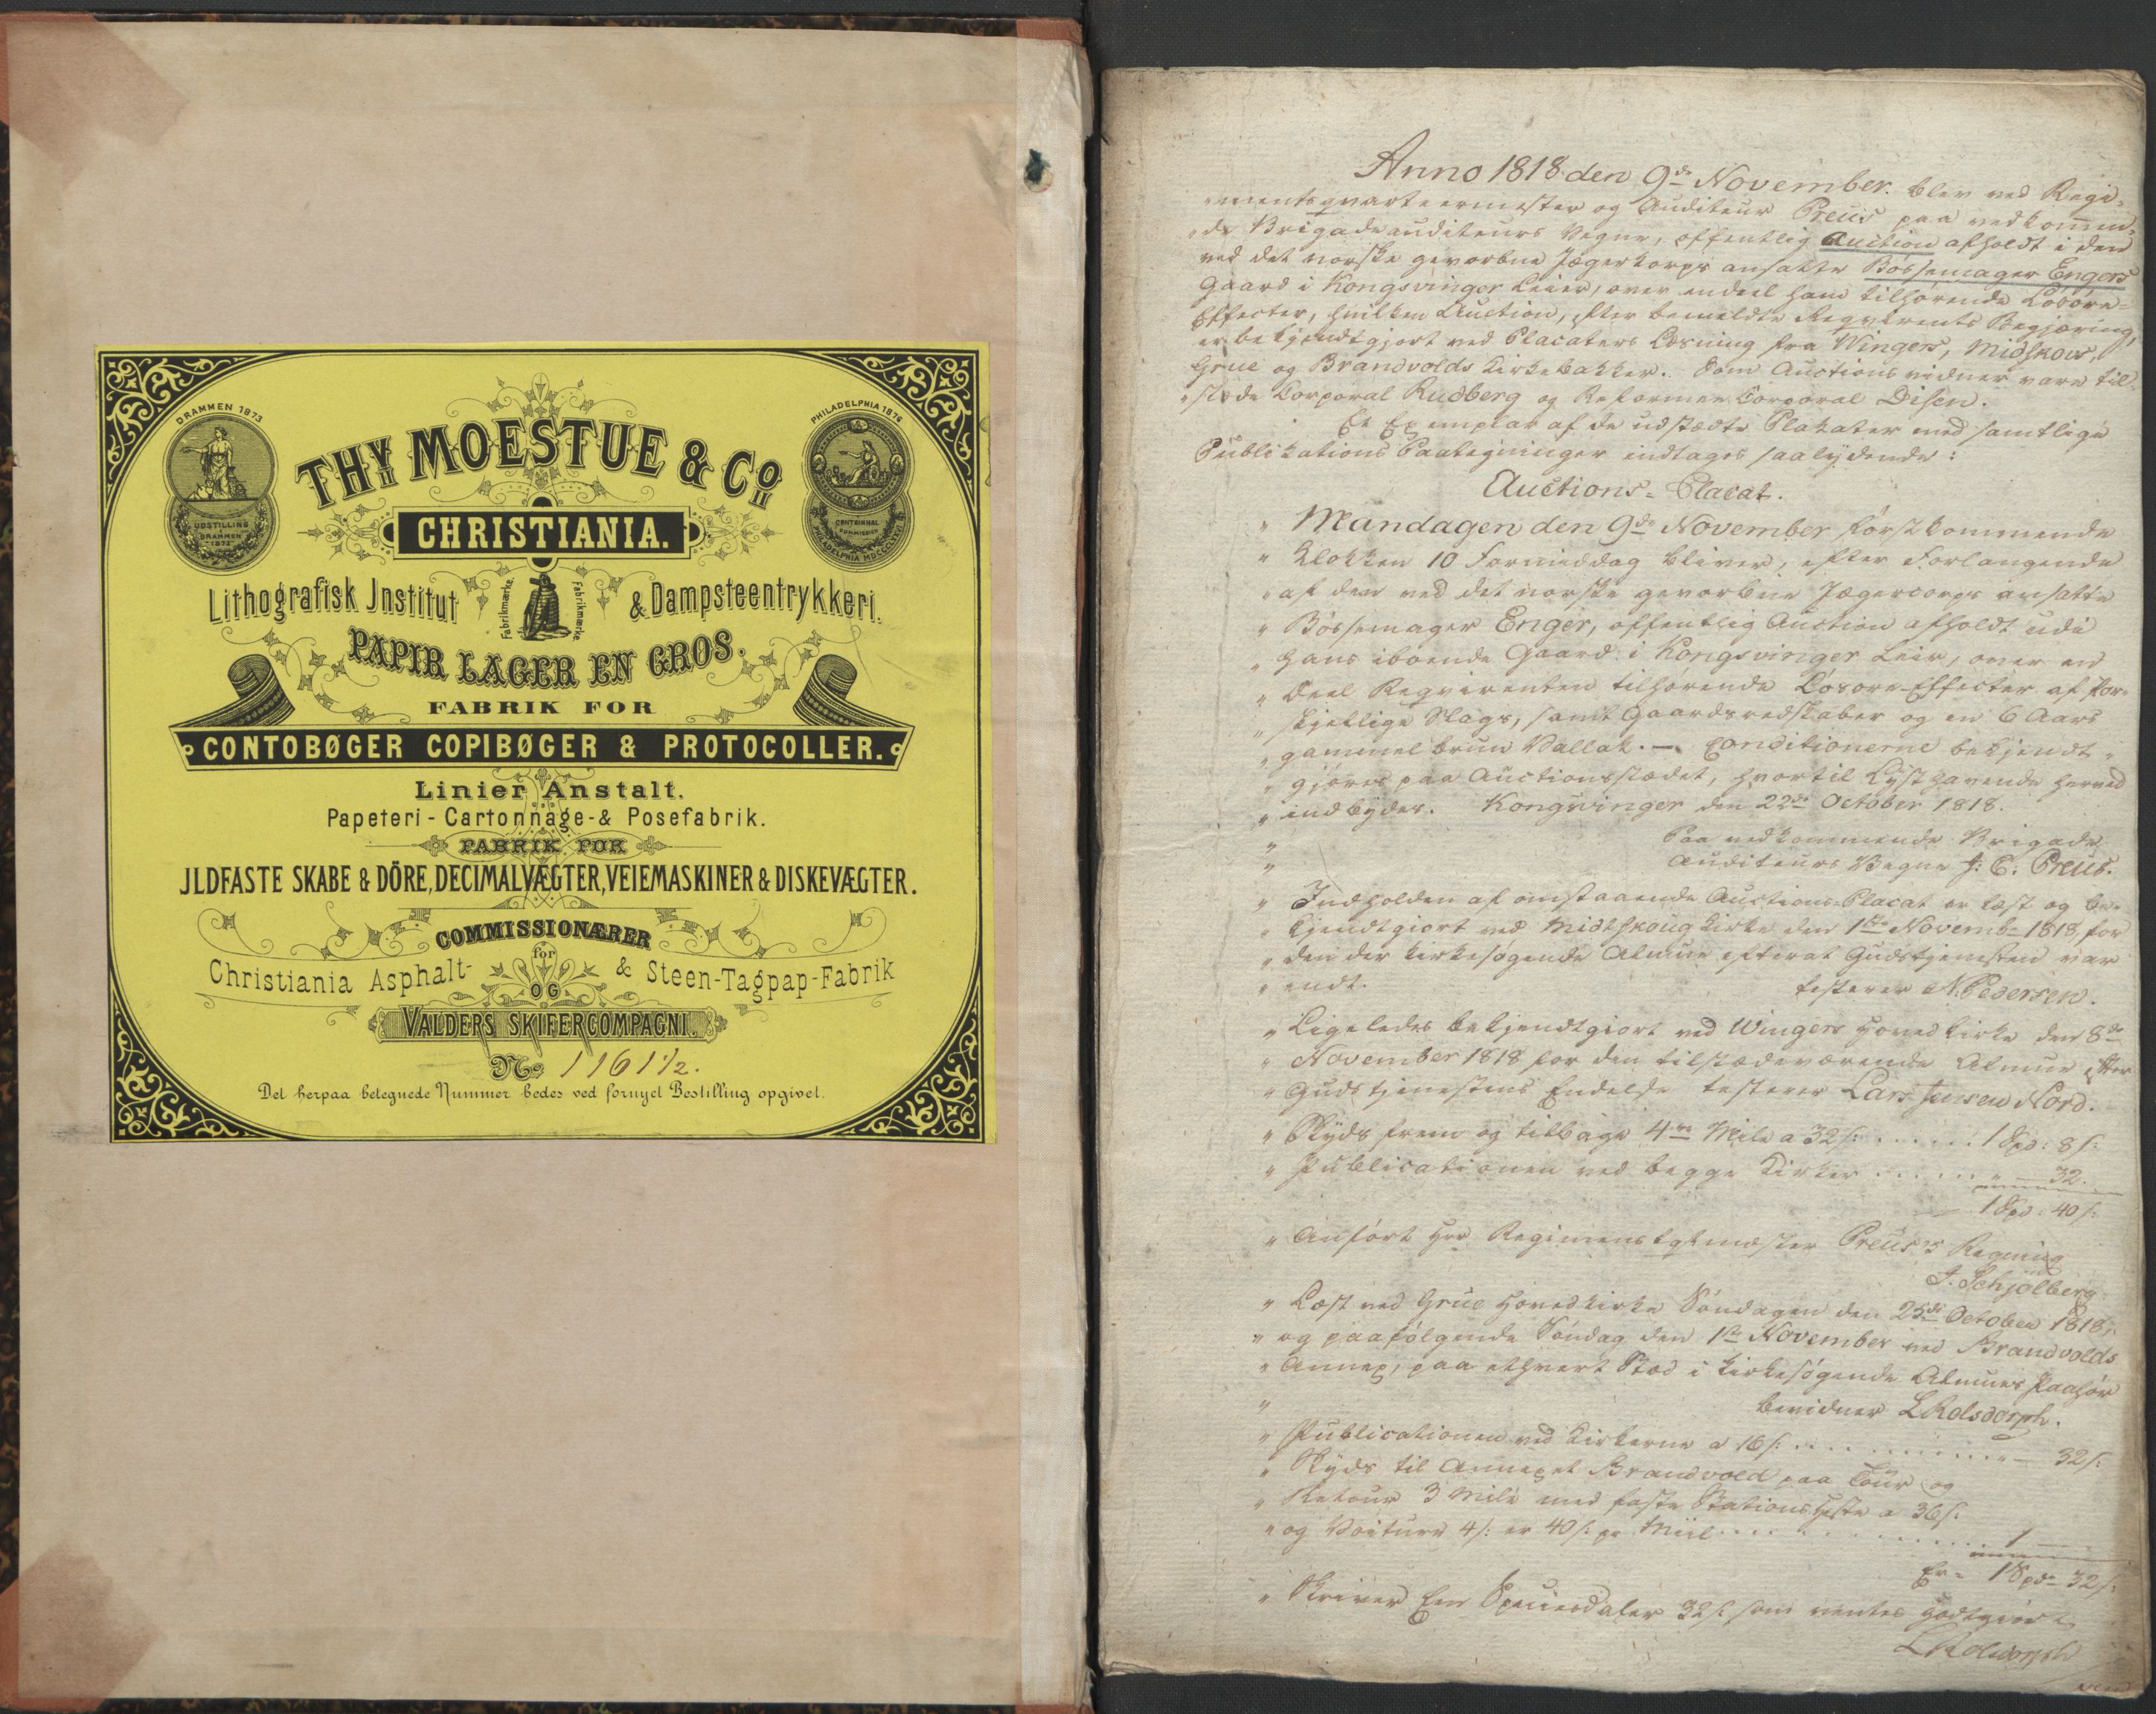 DRAMMEN 1873
UDSTILLING
DRAMMEN
1873
PHILADELPHIA 1876
CENTENNIAL
COMMISSION
PHILADELPHIA MDCCCLXXVI
THV MOESTUE & CO
CHRISTIANIA.
Lithografisk Jnstitut & Dampsteentrykkeri.
Fabrikmærke. Fabrikmærke
PAPIR LAGER EN GROS.
FABRIK FOR
CONTOBØGER COPIBØGER & PROTOCOLLER.
Linier Anstalt.
Papeteri-Cartonnage-& Posefabrik.
FABRIK FOR
JLDFASTE SKABE & DÖRE, DECIMALVÆGTER, VEIEMASKINER & DISKEVÆGTER.
COMMISSIONÆRER
for
Christiania Asphalt- & Steen-Tagpap-Fabrik
OG
VALDERS SKIFERCOMPAGNI.
No 1161 1/2.
Det herpaa betegnede Nummer bedes ved fornyet Bestilling opgivet.
Anno 1818 den 9de November. blev ved Regi-
mentsqvarteermester og Auditeur Preus paa vedkommen-
de Brigadeauditeurs Vegne, offentlig Auction afholdt i den
ved det norske gevorbne Jægerkorps ansatte Bössemager Engers
Gaard i Kongsvinger Leier, over endeel ham tilhørende Løsøre-
Effecter, hvilken Auction, efter bemeldte Reqvirents Begjæring,
er bekjendtgjort ved Placaters Læsning fra Wingers, Midskovs,
Grue og Brandvolds Kirkebakker. Som Auctionsvidner vare til-
stede Corporal Rudberg og Reformeer Corporal Disen.
Et Exemplar af de udstædte Plakater med samtlige
Publikations Paategninger indtages saalydende:
Auctions-Placat.
" Mandagen den 9de November førstkommende
" Klokken 10 Formiddag bliver, efter Forlangende
" af den ved det norske gevorbne Jægercorps ansatte
" Bössemager Enger, offentlig Auction afholdt udi
" hans iboende Gaard i Kongsvinger Leir, over en
" Deel Reqvirenten tilhørende Løsøre-Effecter af for-
" skjellige Slags, samt Gaardsredskaber og en 6 Aars
" gammel brun Vallak. — Conditionerne bekjendt-
" gjøres paa Auctionsstædet, hvortil Lysthavende herved
" indbydes. Kongsvinger den 22de October 1818.
" Paa vedkommende Brigade
" Auditeurs Vegne J: C. Preus.
" Indholden af omstaaende Auctions-Placat er læst og be-
" kjendtgiort ved Midtskoug Kirke den 1ste Novembr 1818 for
" den der kirkesøgende Almue efterat Gudstjenesten var
" endt. testerer N. Pedersen.
" Ligeledes bekjendtgiort ved Wingers Hovedkirke den 8de
" November 1818 for den tilstædeværende Almue efter
" Gudstjenestens Endelse testerer Lars Jensen Nord.
" Skyds frem og tilbage 4re Mile a 32 s: ...... 1 Spd: 8 s:
" Publicationen ved begge Kirker ...... " — 32.
1 Spd: 40 s:
" Anført Herr Regimentsqtmester Preus's Regning
J. Schjølberg.
" Læst ved Grue Hovedkirke Søndagen den 25de October 1818,
" og paafølgende Søndag den 1ste November ved Brandvolds
" Annex, paa ethvert Stæd i kirkesøgende Almues Paahør
" bevidner L Rolsdorph.
" Publicationen ved Kirkerne a 16 s: ........ " — 32 s:
" Skyds til Annexet Brandvold paa Tour og
" Retour 3 Mile med faste Stationsheste a 36 s:
" og Voiture 4 s: er 40 s: pr Miil ........ 1 —
Er = 1 Spd 32 s:
" Skriver Een Speciesdaler 32 s: som ventes godtgiort
L Rolsdorph